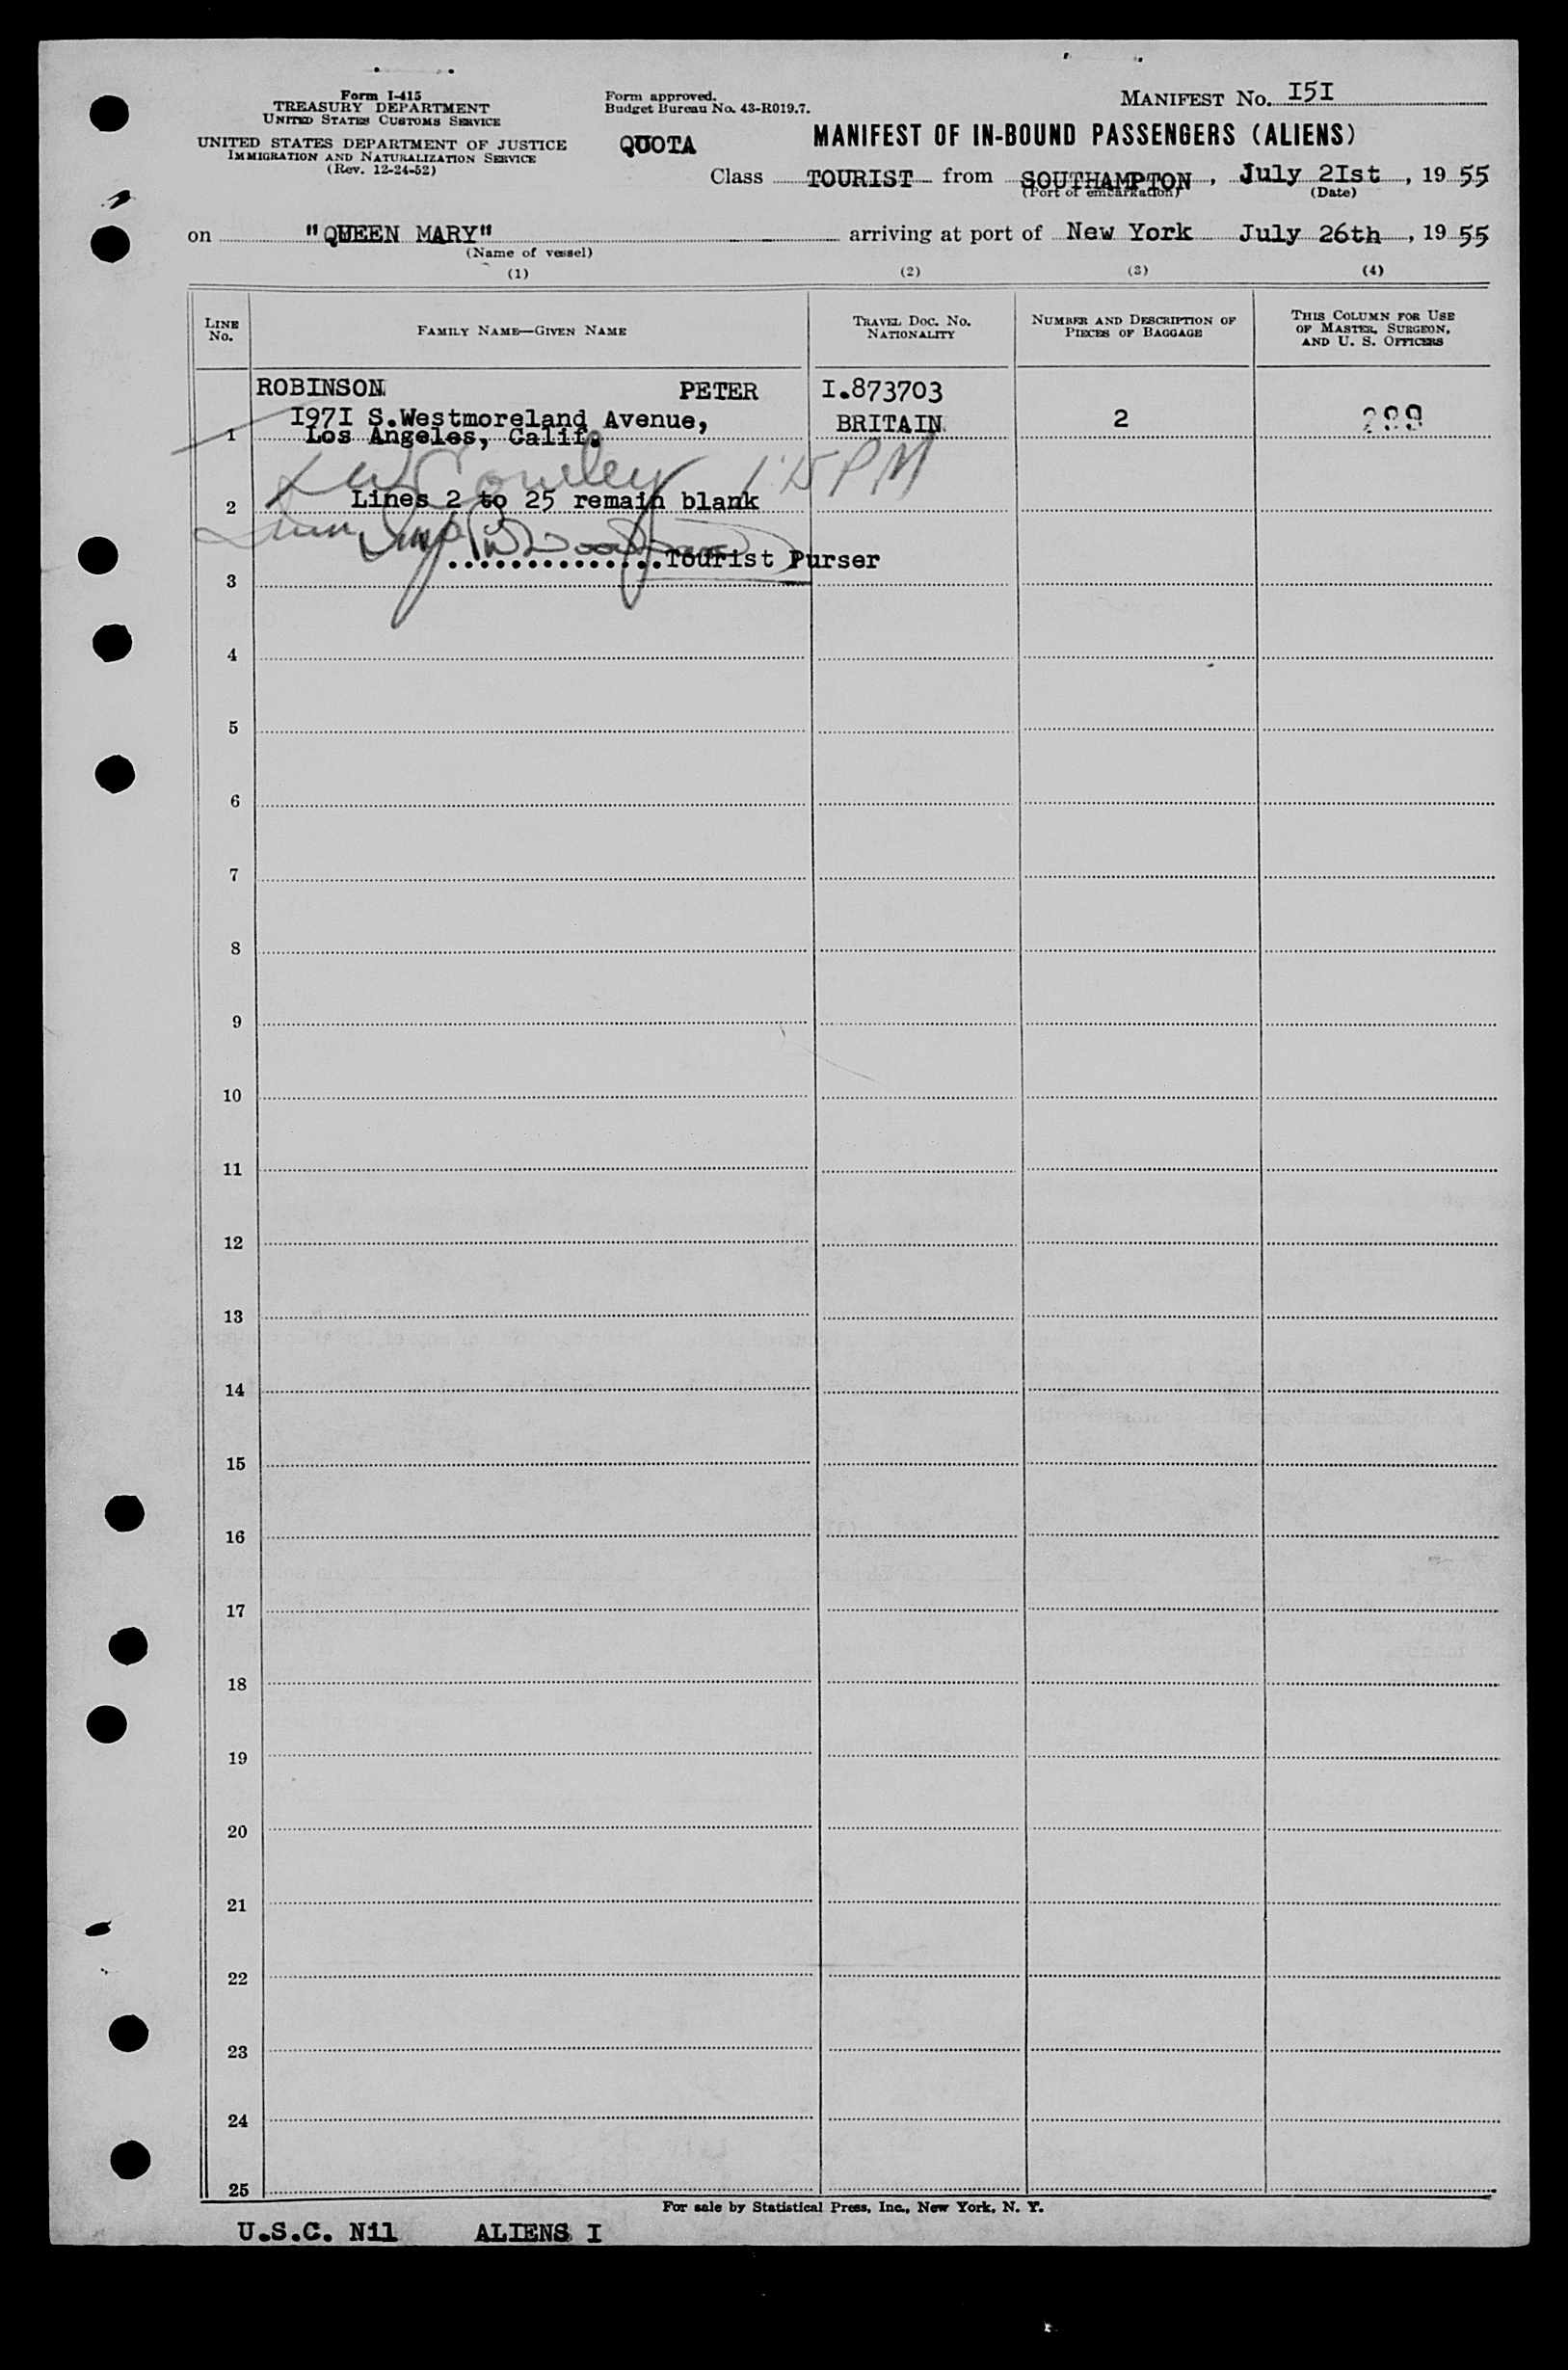 Form I-415
TREASURY DEPARTMENT
UNITED STATES CUSTOMS SERVICE
UNITED STATES DEPARTMENT OF JUSTICE
IMMIGRATION AND NATURALIZATION SERVICE
(Rev. 12-24-52)
Form approved.
Budget Bureau No. 43-R019.7.
QUOTA
MANIFEST No. I5I
MANIFEST OF IN-BOUND PASSENGERS (ALIENS)
Class TOURIST from SOUTHAMPTON, July 2Ist, 19 55
(Port of embarkation) (Date)
on "QUEEN MARY" arriving at port of New York July 26th, 19 55
(Name of vessel)
(1) (2) (3) (4)
LINE No. FAMILY NAME—GIVEN NAME TRAVEL DOC. No. NATIONALITY NUMBER AND DESCRIPTION OF PIECES OF BAGGAGE THIS COLUMN FOR USE OF MASTER, SURGEON, AND U. S. OFFICERS
ROBINSON PETER I.873703
I97I S.Westmoreland Avenue, BRITAIN 2 299
1 Los Angeles, Calif.
Cowley 1:15 PM
2 Lines 2 to 25 remain blank
..............Tourist Purser
3
4
5
6
7
8
9
10
11
12
13
14
15
16
17
18
19
20
21
22
23
24
25
For sale by Statistical Press, Inc., New York, N. Y.
U.S.C. Nil ALIENS I